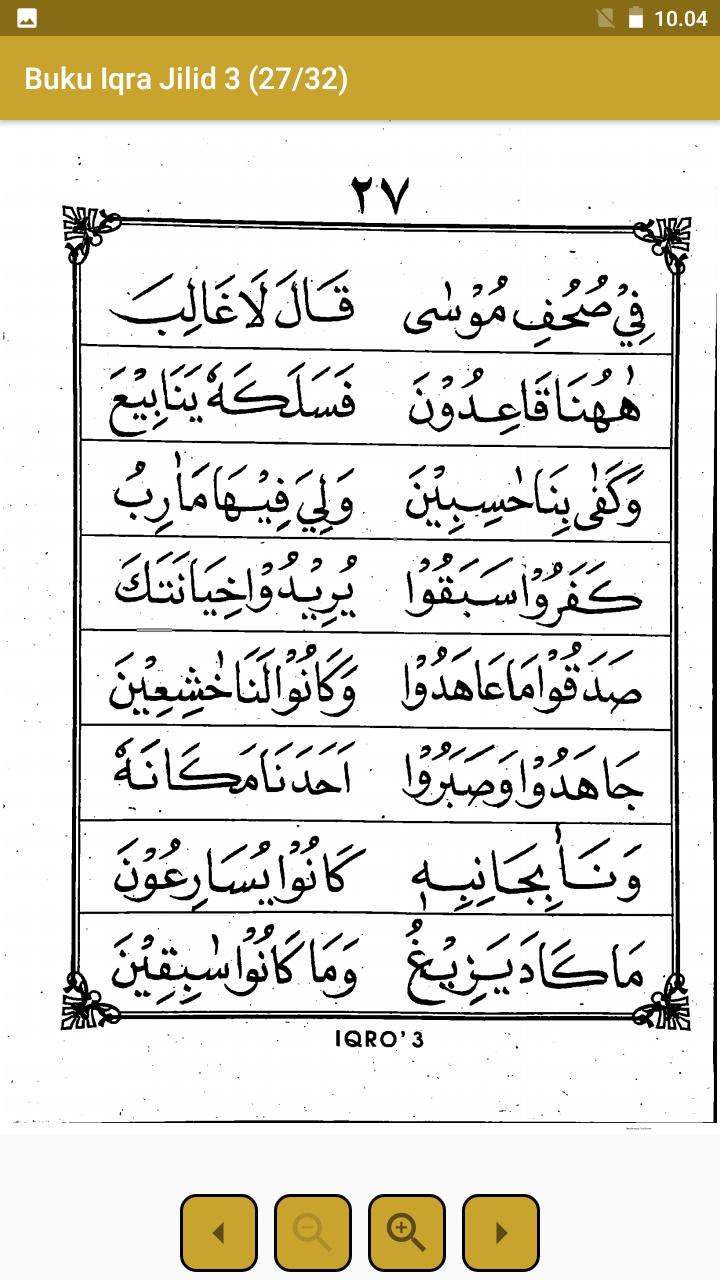 10.04
Buku Iqra Jilid 3 (27/32)
٢٧
فِيْ صُحُفِ مُوْسٰى قَالَ لَا غَالِبَ
هٰهُنَا قَاعِدُوْنَ فَسَلَكَهٗ يَنَابِيْعَ
وَكَفٰى بِنَا حٰسِبِيْنَ وَلِيَ فِيْهَا مَاٰرِبُ
كَفَرُوْا سَبَقُوْا يُرِيْدُوْا خِيَانَتَكَ
صَدَقُوْا مَا عَاهَدُوْا وَكَانُوْا لَنَا خٰشِعِيْنَ
جَاهَدُوْا وَصَبَرُوْا اَحَدَنَا مَكَانَهٗ
وَنَاٰ بِجَانِبِهٖ كَانُوْا يُسَارِعُوْنَ
مَا كَادَ يَزِيْغُ وَمَا كَانُوْا سٰبِقِيْنَ
IQRO' 3